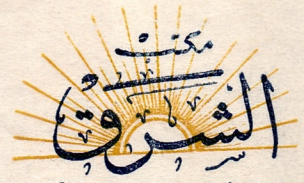 مكتب
الشرق